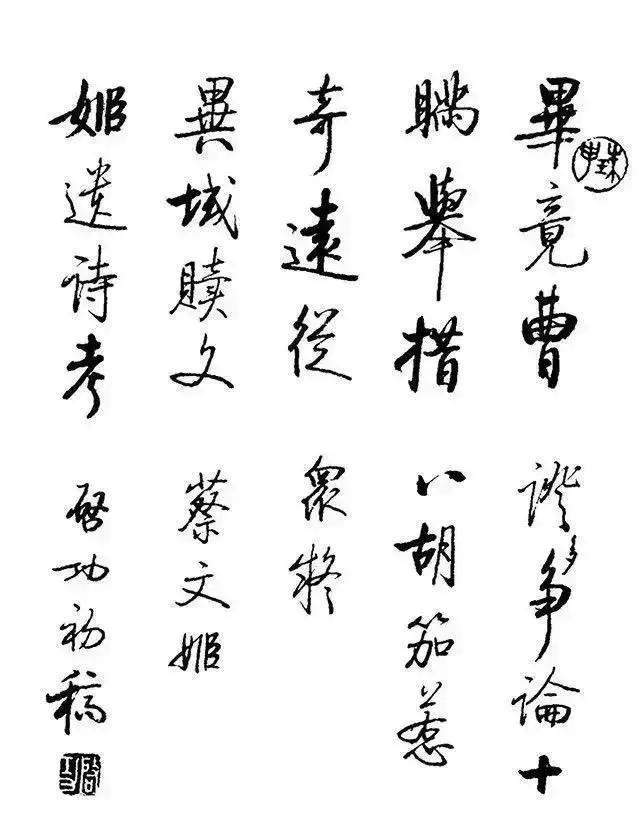 珠申
畢竟曹
瞞舉措
奇遠從
異域贖文
姬遺詩考
證多爭論十
八胡笳惹
眾疑
蔡文姬
啓功初稿